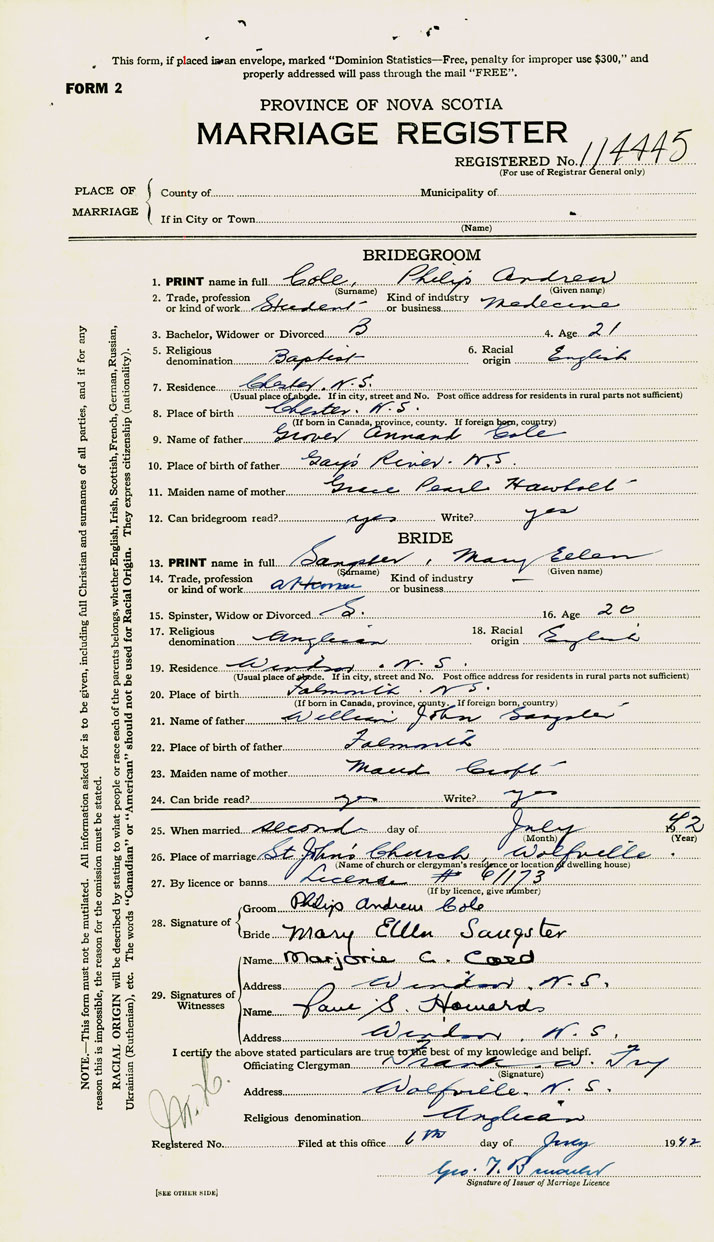 This form, if placed in an envelope, marked "Dominion Statistics—Free, penalty for improper use $300," and
properly addressed will pass through the mail "FREE".
FORM 2
PROVINCE OF NOVA SCOTIA
MARRIAGE REGISTER
REGISTERED No. 114445
(For use of Registrar General only)
PLACE OF MARRIAGE
County of Municipality of
If in City or Town
(Name)
BRIDEGROOM
1. PRINT name in full Cole, Philip Andrew
(Surname) (Given name)
2. Trade, profession or kind of work Student Kind of industry or business Medecine
3. Bachelor, Widower or Divorced B 4. Age 21
5. Religious denomination Baptist 6. Racial origin English
7. Residence Chester. N.S.
(Usual place of abode. If in city, street and No. Post office address for residents in rural parts not sufficient)
8. Place of birth Chester. N.S.
(If born in Canada, province, county. If foreign born, country)
9. Name of father Grover Annand Cole
10. Place of birth of father Gay's River. N.S.
11. Maiden name of mother Grace Pearl
12. Can bridegroom read? yes Write? yes
BRIDE
13. PRINT name in full Sangster, Mary Ellen
(Surname) (Given name)
14. Trade, profession or kind of work at Home Kind of industry or business —
15. Spinster, Widow or Divorced S. 16. Age 20
17. Religious denomination Anglican 18. Racial origin English
19. Residence Windsor. N.S.
(Usual place of abode. If in city, street and No. Post office address for residents in rural parts not sufficient)
20. Place of birth Falmouth. N.S.
(If born in Canada, province, county. If foreign born, country)
21. Name of father William John Sangster
22. Place of birth of father Falmouth
23. Maiden name of mother Maud Croft
24. Can bride read? yes Write? yes
25. When married second day of July 1942
(Month) (Year)
26. Place of marriage St John's Church, Wolfville.
(Name of church or clergyman's residence or location of dwelling house)
27. By licence or banns License # 61173
(If by licence, give number)
28. Signature of
Groom Philip Andrew Cole
Bride Mary Ellen Sangster
29. Signatures of Witnesses
Name Marjorie C.
Address Windsor, N.S.
Name S.
Address Windsor, N.S.
I certify the above stated particulars are true to the best of my knowledge and belief.
Officiating Clergyman Frank W.
(Signature)
Address Wolfville. N.S.
Religious denomination Anglican
Registered No. Filed at this office 6th day of July 1942
Geo. T.
Signature of Issuer of Marriage Licence
[SEE OTHER SIDE]
NOTE.—This form must not be mutilated. All information asked for is to be given, including full Christian and surnames of all parties, and if for any
reason this is impossible, the reason for the omission must be stated.
RACIAL ORIGIN will be described by stating to what people or race each of the parents belongs, whether English, Irish, Scottish, French, German, Russian,
Ukrainian (Ruthenian), etc. The words "Canadian" or "American" should not be used for Racial Origin. They express citizenship (nationality).